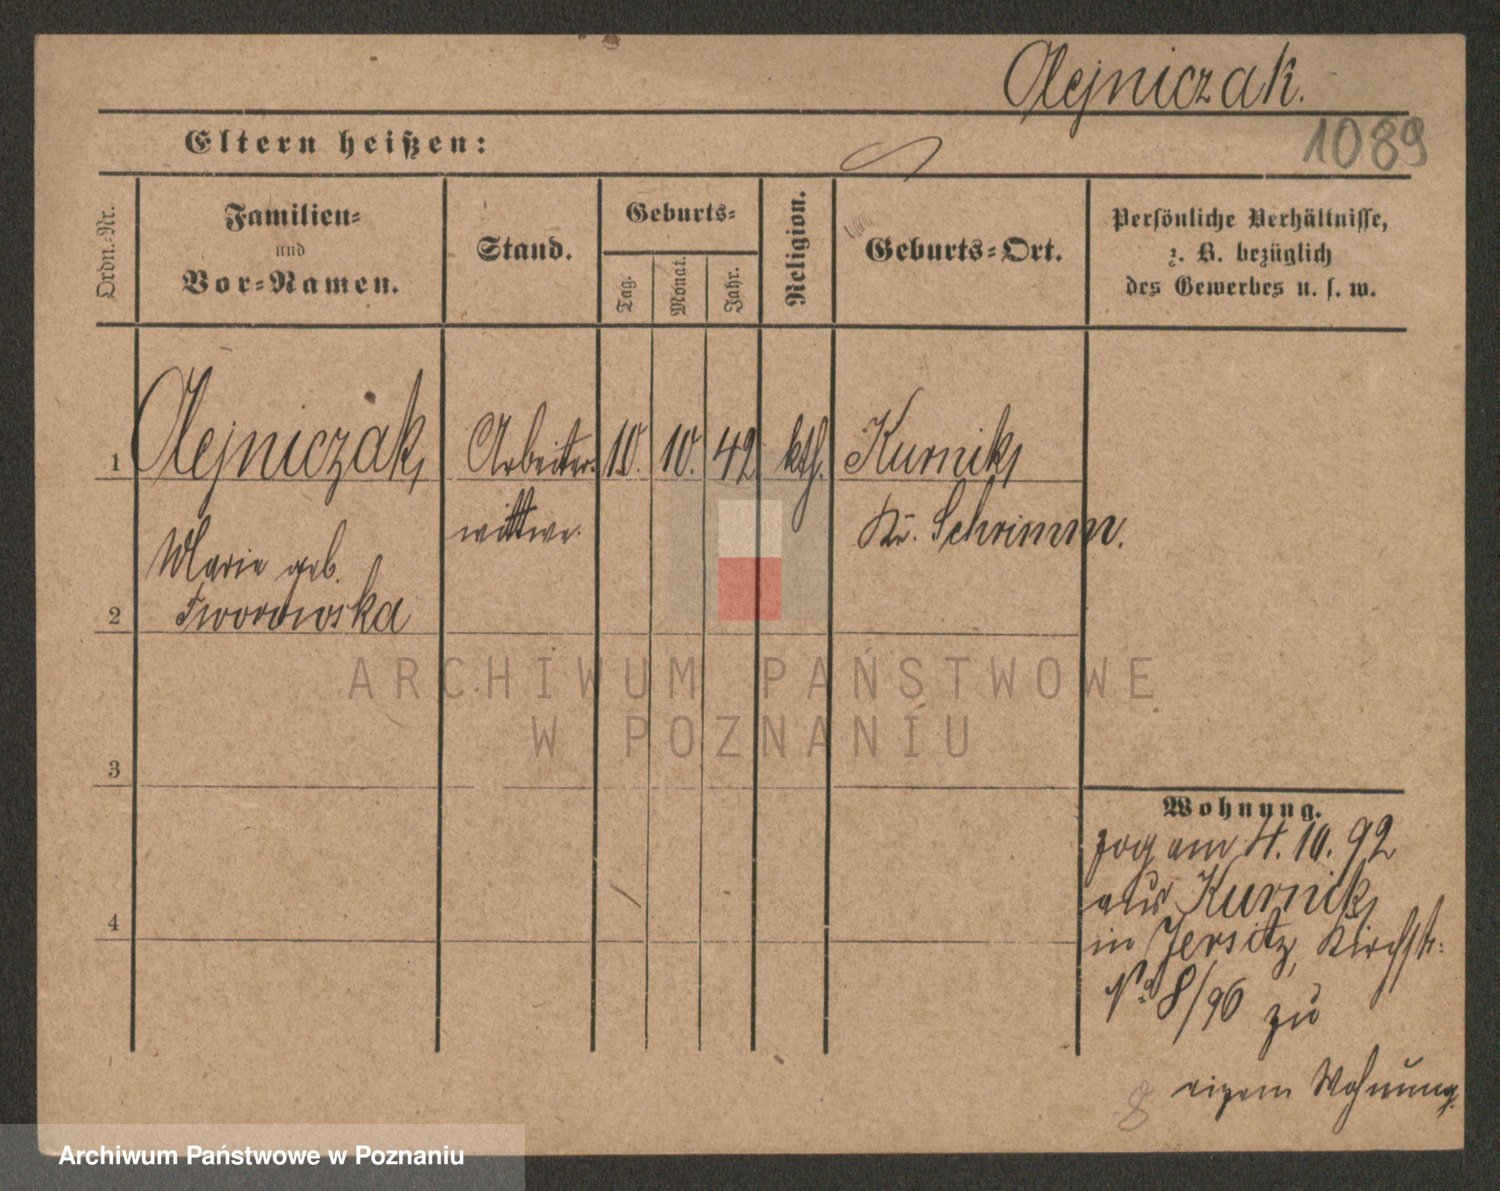 Olejniczak.
1089
Eltern heißen:
Ordn.-Nr.
Familien-
und
Vor-Namen.
Stand.
Geburts-
Tag.
Monat.
Jahr.
Religion.
Geburts-Ort.
Persönliche Verhältnisse,
z. B. bezüglich
des Gewerbes u. s. w.
1 Olejniczak, Arbeiter- 10. 10. 42 kth. Kurnik,
wittwe. Kr. Schrimm.
Marie geb.
2 Tworowska
ARCHIWUM PAŃSTWOWE
W POZNANIU
3
Wohnung.
zog am 4. 10. 92
aus Kurnik,
4
in Jersitz, Kirchstr:
No 8/96 zu
eigem Wohnung.
8
Archiwum Państwowe w Poznaniu